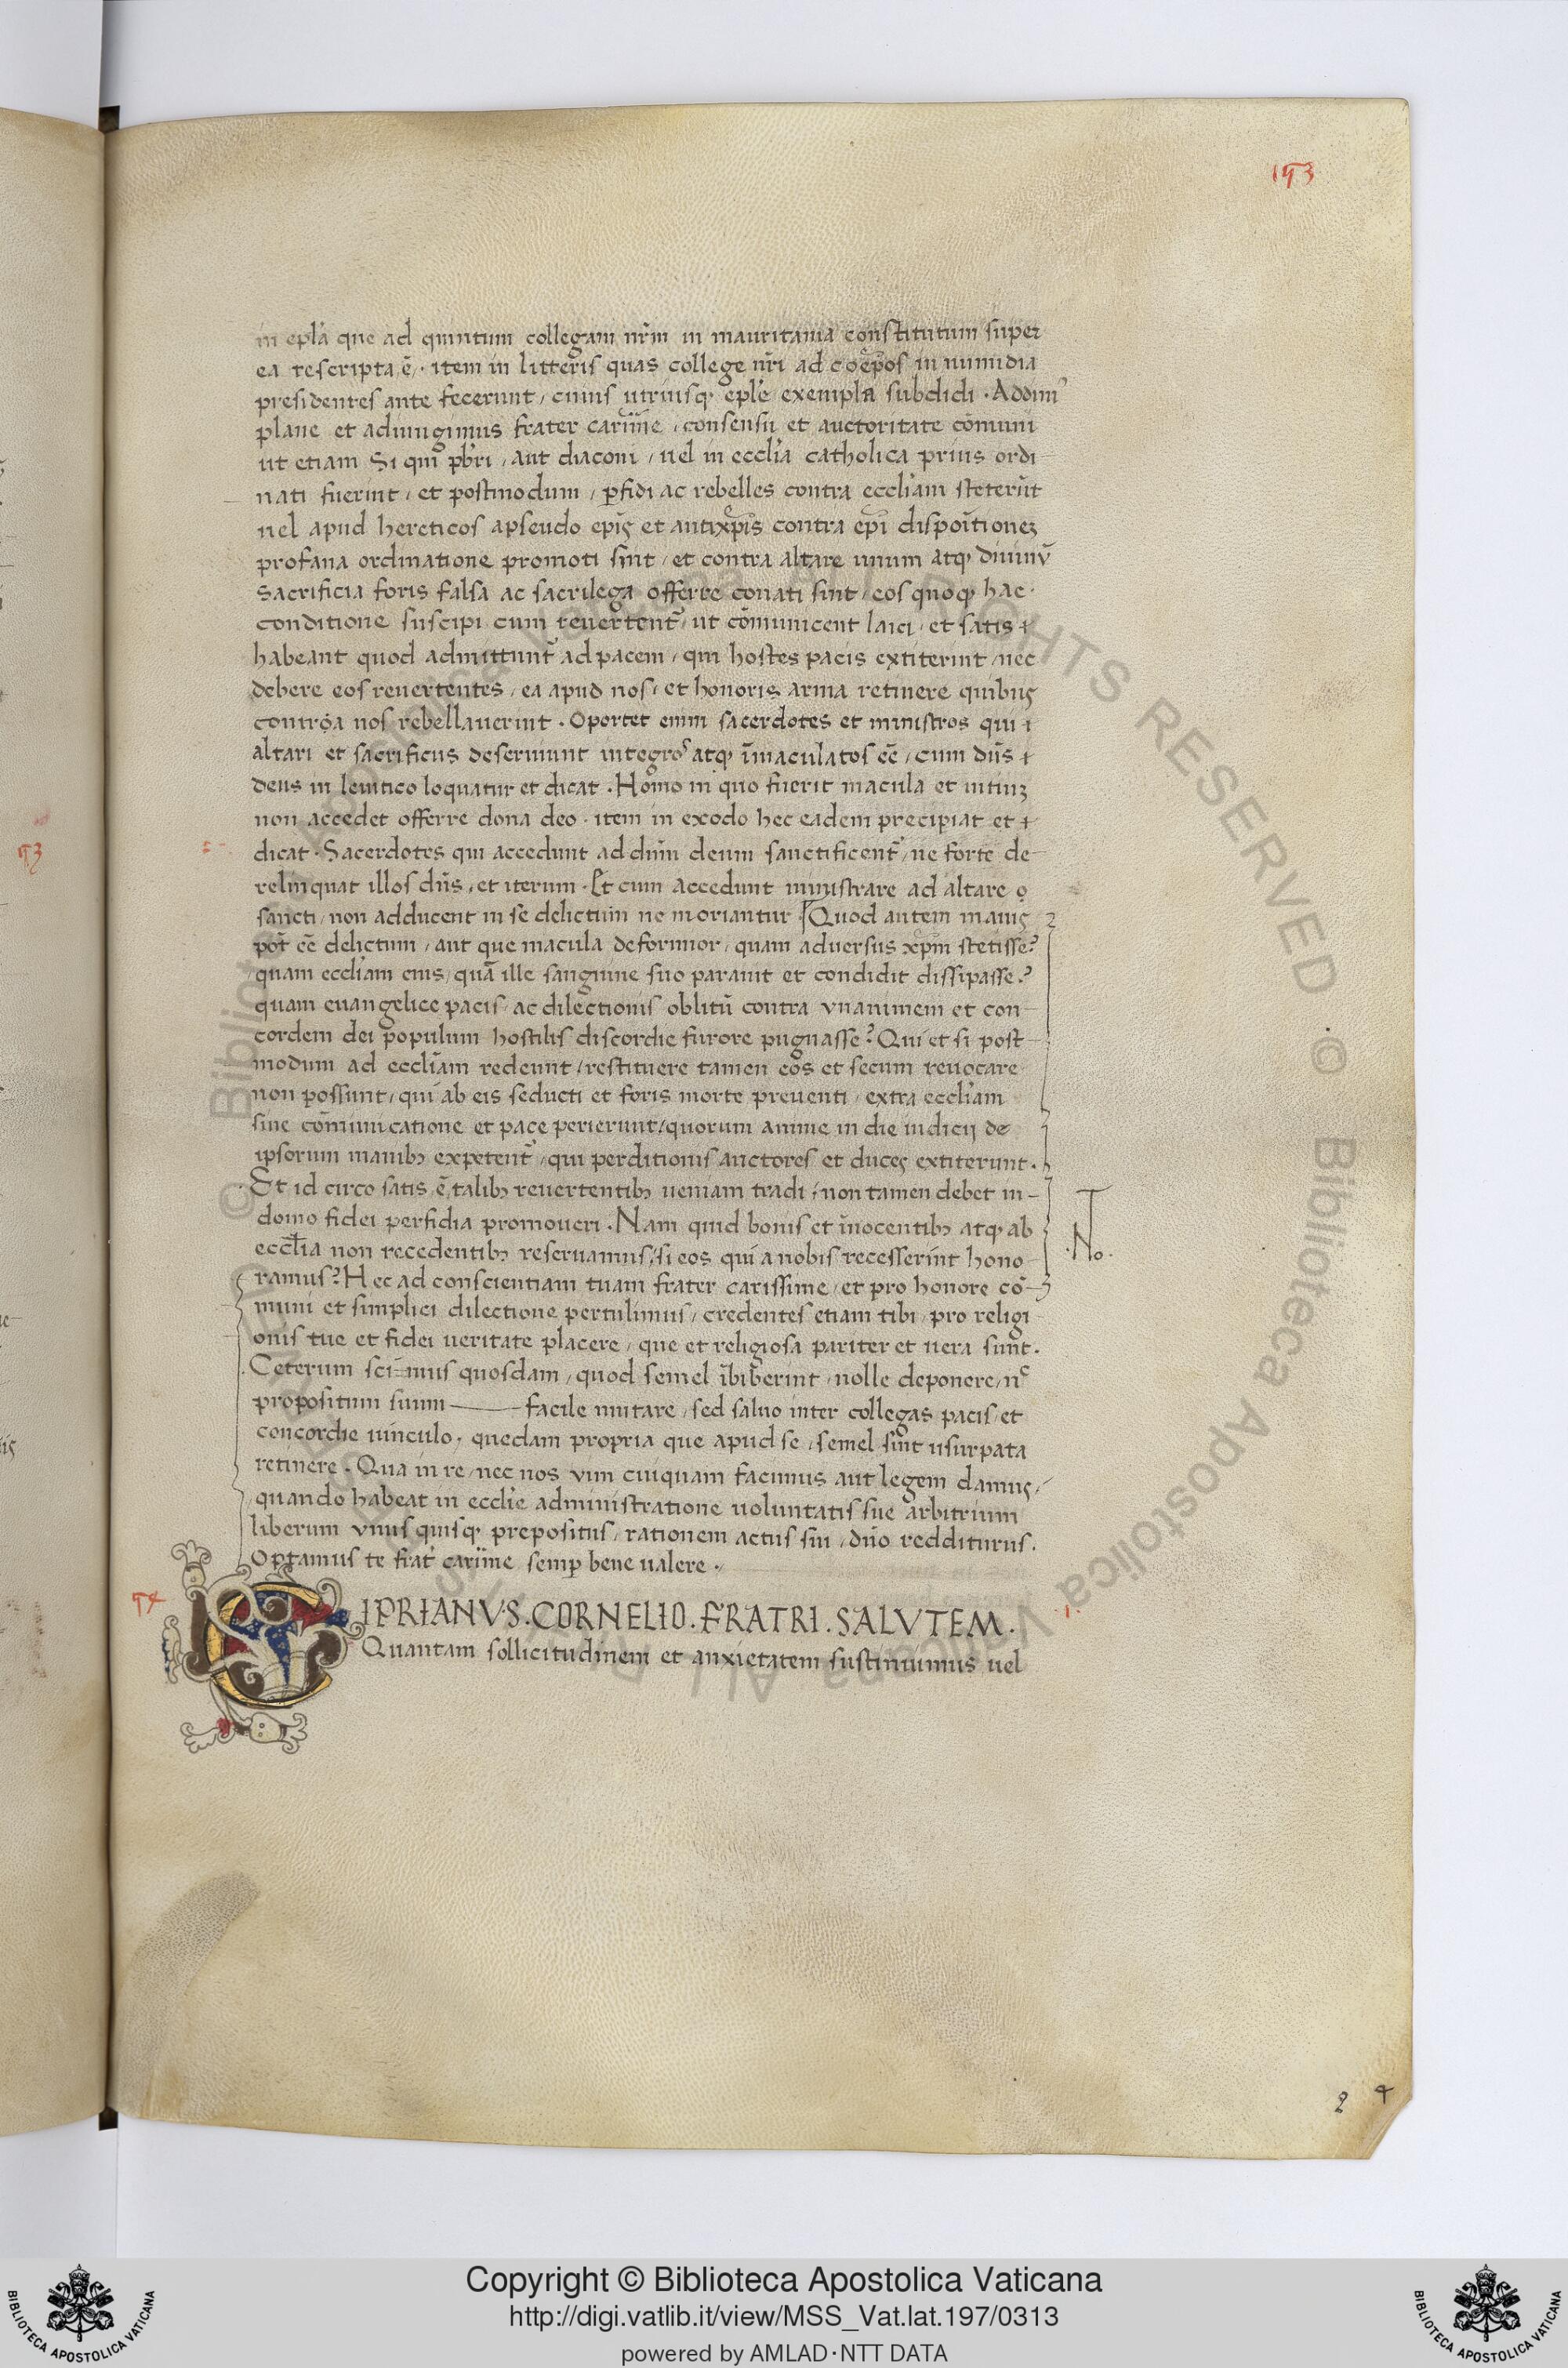 153
in epła que ad quintum collegam nr̃m in mauritania constitutum super
ea rescripta ẽ · item in litteris quas college nr̃i ad coep̃os in numidia
presidentes ante fecerunt / cuius utriusq; epłe exempla subdidi · Addim⁹
plane et adiungimus frater carim̃e / consensu et auctoritate cõmuni
ut etiam Si qui p̃bri / aut diaconi / uel in ecclia catholica prius ordi-
nati fuerint / et postmodum / ꝑfidi ac rebelles contra eccliam steterũt
uel apud hereticos apseudo epĩs et antixp̃is contra ep̃i dispoĩtionez
profana ordinatione promoti sint / et contra altare unum atq; diuinũ
Sacrificia foris falsa ac sacrilega offerre conati sint / eos quoq; hac ·
conditione suscipi cum reuertent᷑ / ut cõmunicent laici / et satis
habeant quod admittunt᷑ ad pacem / qui hostes pacis extiterint / nec
debere eos reuertentes / ea apud nos / et honoris arma retinere quibus
contra nos rebellauerint · Oportet enim sacerdotes et ministros qui
altari et sacrificiis deseruiunt integros atq; ĩmaculatos eẽ / cum dñs
deus in leuitico loquatur et dicat · Homo in quo fuerit macula et uitiuʒ
non accedet offerre dona deo · item in exodo hec eadem precipiat et
dicat · Sacerdotes qui accedunt ad dñm deum sanctificent᷑ / ne forte de-
relinquat illos dñs / et iterum · Et cum accedunt ministrare ad altare
sancti / non adducent in se delictum ne moriantur · Quod autem maius
pot̃ eẽ delictum / aut que macula deformior / quam aduersus xp̃m stetisse?
quam eccliam eius / quã ille sanguine suo parauit et condidit dissipasse?
quam euangelice pacis / ac dilectionis oblitũ contra vnanimem et con-
cordem dei populum hostilis discordie furore pugnasse? Qui et si post-
modum ad eccliam redeunt / restituere tamen eos et secum reuocare
non possunt / qui ab eis seducti et foris morte preuenti / extra eccliam
sine cõmunicatione et pace perierunt / quorum anime in die iudicij de
ipsorum manibʒ expetent᷑ / qui perditionis auctores et duces extiterunt.
Et id circo satis ẽ talibʒ reuertentibʒ ueniam tradi / non tamen debet in-
domo fidei perfidia promoueri · Nam quid bonis et ĩnocentibʒ atq; ab
ecclia non recedentibʒ reseruamus / si eos qui a nobis recesserint hono-
No.
ramus? Hec ad conscientiam tuam frater carissime / et pro honore cõ-
muni et simplici dilectione pertulimus / credentes etiam tibi / pro religi-
onis tue et fidei ueritate placere / que et religiosa pariter et uera sunt.
Ceterum scimus quosdam / quod semel ĩbiberint / nolle deponere / nᶜ
propositum suum —— facile mutare / sed saluo inter collegas pacis / et
concordie uinculo / quedam propria que apud se / semel sint usurpata
retinere · Qua in re / nec nos vim cuiquam facimus aut legem damus /
quando habeat in ecclie administratione uoluntatis sue arbitrium
liberum vnus quisq; prepositus / rationem actus sui / dño redditurus.
Optamus te frat᷑ carĩme semꝑ bene ualere ·
54
CIPRIANVS. CORNELIO. FRATRI. SALVTEM.
Quantam sollicitudinem et anxietatem sustinuimus uel
2 4
53
© Biblioteca Apostolica Vaticana ALL RIGHTS RESERVED · © Biblioteca Apostolica Vaticana ALL RIGHTS RESERVED
Copyright © Biblioteca Apostolica Vaticana
http://digi.vatlib.it/view/MSS_Vat.lat.197/0313
powered by AMLAD·NTT DATA
BIBLIOTECA APOSTOLICA VATICANA
BIBLIOTECA APOSTOLICA VATICANA